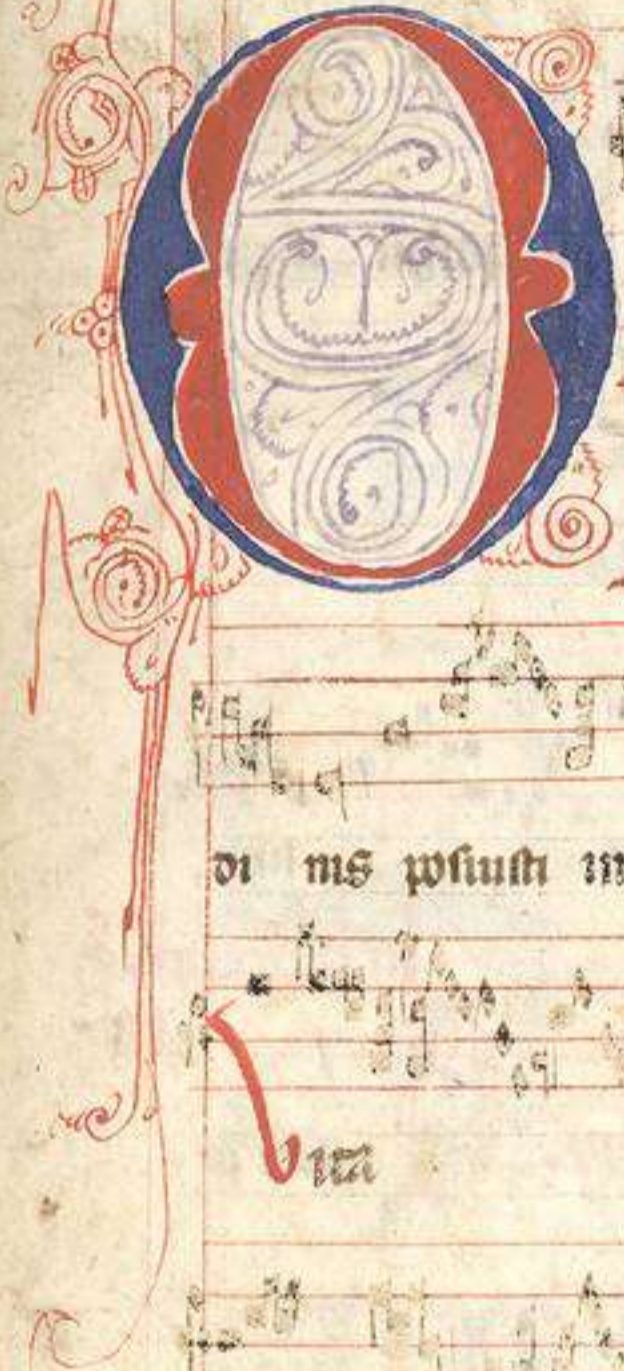 O
di nis posuisti in
Vita